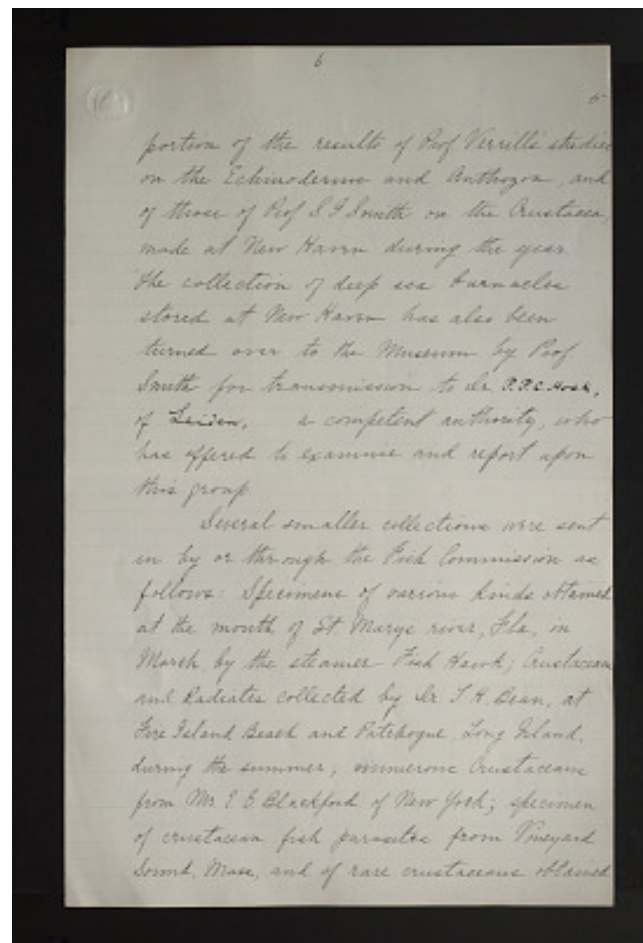 6
5
portion of the results of Prof Verrill's studies
on the Echinoderms and Anthozoa, and
of those of Prof S I Smith on the Crustacea,
made at New Haven during the year.
The collection of deep sea barnacles
stored at New Haven has also been
turned over to the Museum by Prof
Smith for transmission to Dr P.P.C. Hoek,
of Leiden, a competent authority, who
has offered to examine and report upon
this group.
Several smaller collections were sent
in by or through the Fish Commission as
follows: Specimens of various kinds obtained
at the mouth of St. Marys river, Fla, in
March by the steamer Fish Hawk; Crustaceans
and Radiates collected by Dr T. H. Bean, at
Fire Island Beach and Patchogue, Long Island,
during the summer; numerous Crustaceans
from Mr E G Blackford of New York; specimen
of crustacean fish parasites from Vineyard
Sound, Mass, and of rare crustaceans obtained